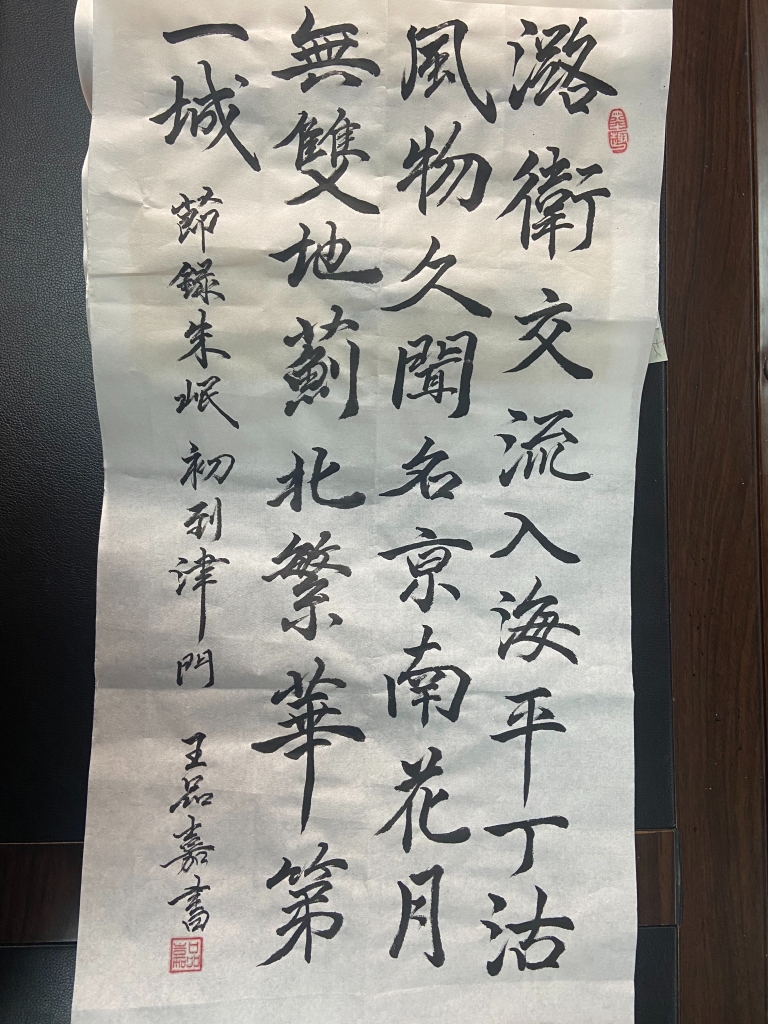 潞衛交流入海平丁沽
風物久聞名京南花月
無雙地薊北繁華第
一城
節錄朱岷初到津門
王品嘉書
品嘉